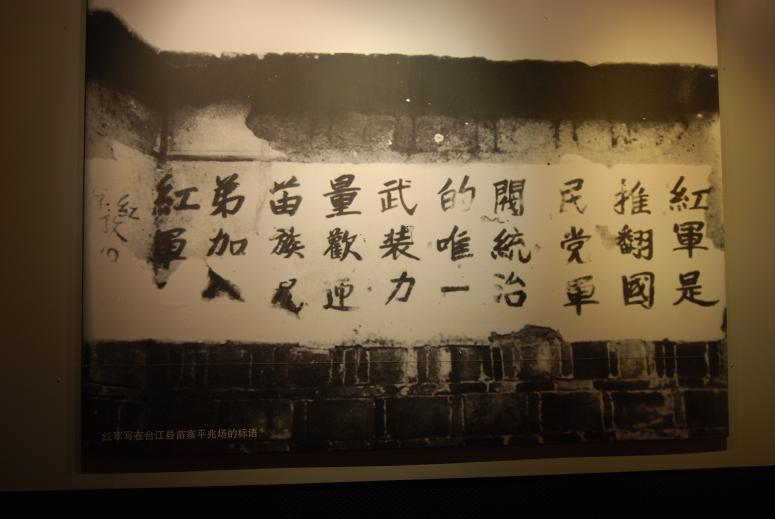 紅軍是
推翻國
民党軍
閥統治
的唯一
武装力
量歡迎
苗族兄
弟加入
紅軍
紅
红军写在台江县苗寨平兆场的标语